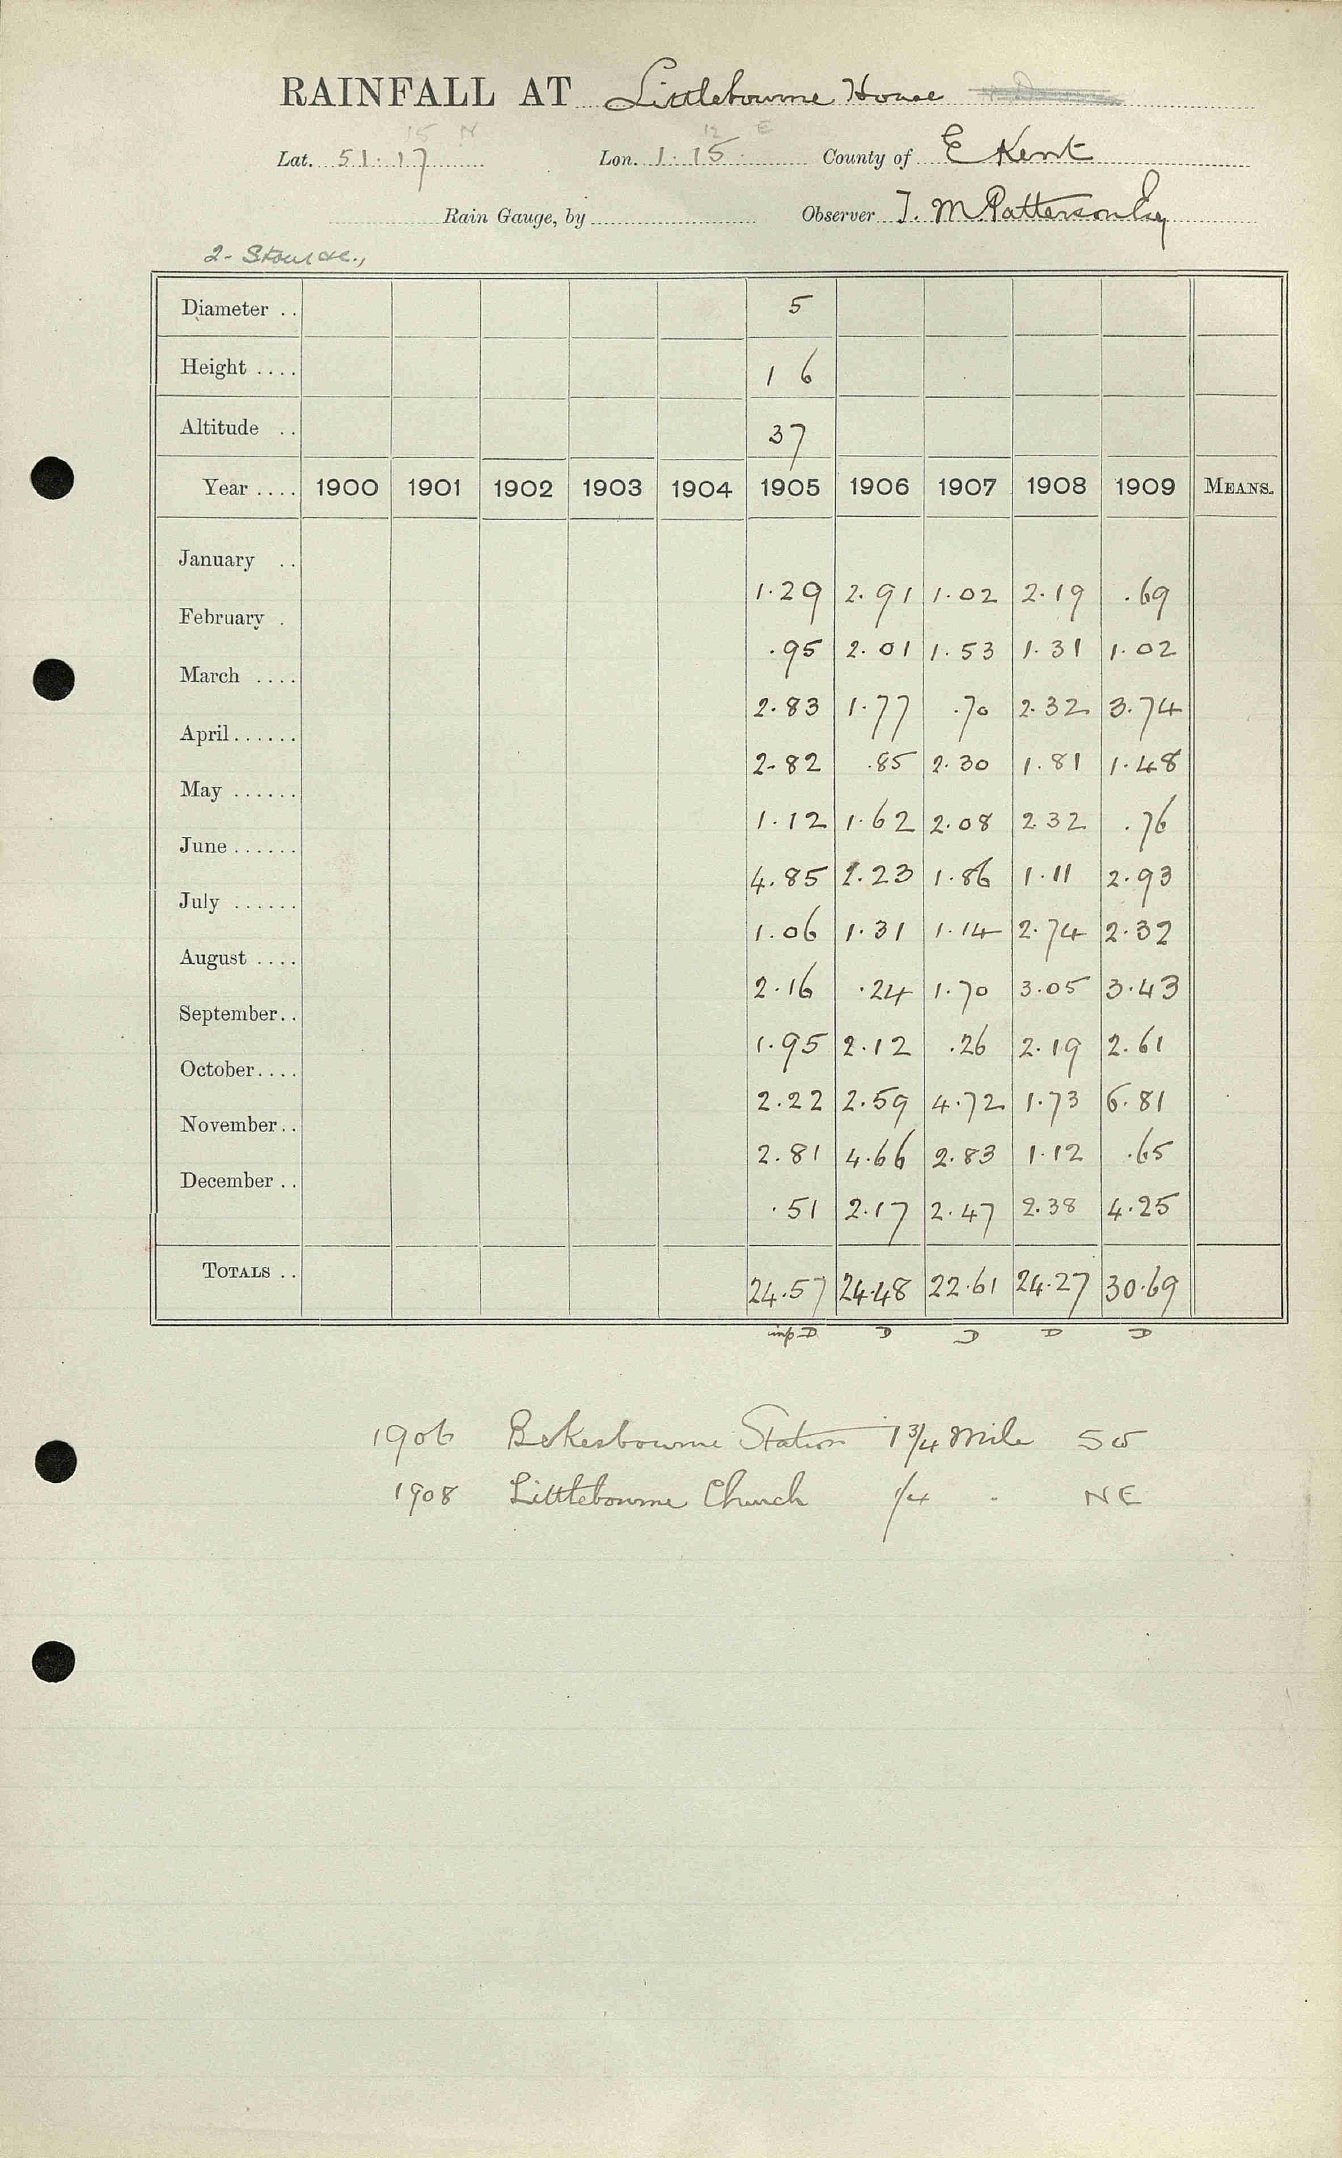 RAINFALL AT Littlebourne House
15 N 12 E
Lat. 51.17 Lon. 1.15 County of E Kent
Rain Gauge, by Observer T. M. Patterson Esq
2- Stour &c.,
Diameter .. 5
Height .... 1 6
Altitude .. 37
Year .... 1900 1901 1902 1903 1904 1905 1906 1907 1908 1909 MEANS.
January .. 1.29 2.91 1.02 2.19 .69
February . .95 2.01 1.53 1.31 1.02
March .... 2.83 1.77 .70 2.32 3.74
April...... 2.82 .85 2.30 1.81 1.48
May ...... 1.12 1.62 2.08 2 32 .76
June ...... 4.85 2.23 1.86 1.11 2.93
July ...... 1.06 1.31 1.14 2.74 2.32
August .... 2.16 .24 1.70 3.05 3.43
September.. 1.95 2.12 .26 2.19 2.61
October.... 2.22 2.59 4.72 1.73 6.81
November.. 2.81 4.66 2.83 1.12 .65
December .. .51 2.17 2.47 2.38 4.25
TOTALS .. 24.57 24.48 22.61 24.27 30.69
inp D D D D D
1906 Bekesbourne Station 1 3/4 Mile SW
1908 Littlebourne Church 1/4 " NE